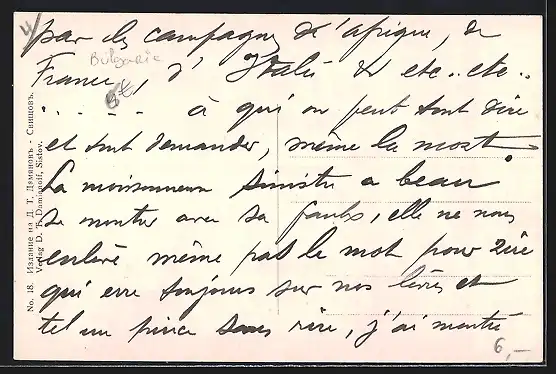 4/
par les campagnes de l'afrique, de
Bulgarie
France, d'Italie & etc..etc..
. . - . . à qui on peut tout dire
et tout demander, même la mort.
La moissonneuse sinistre a beau
se montrer avec sa faulx, elle ne nous
enlève même pas le mot pour rire
qui erre toujours sur nos lèvres et
tel un pince sans rire, j'ai montré
6,-
No. 18. Издание на Д. Т. Дамяновъ - Свищовъ.
Verlag D. T. Damianoff, Sistov.